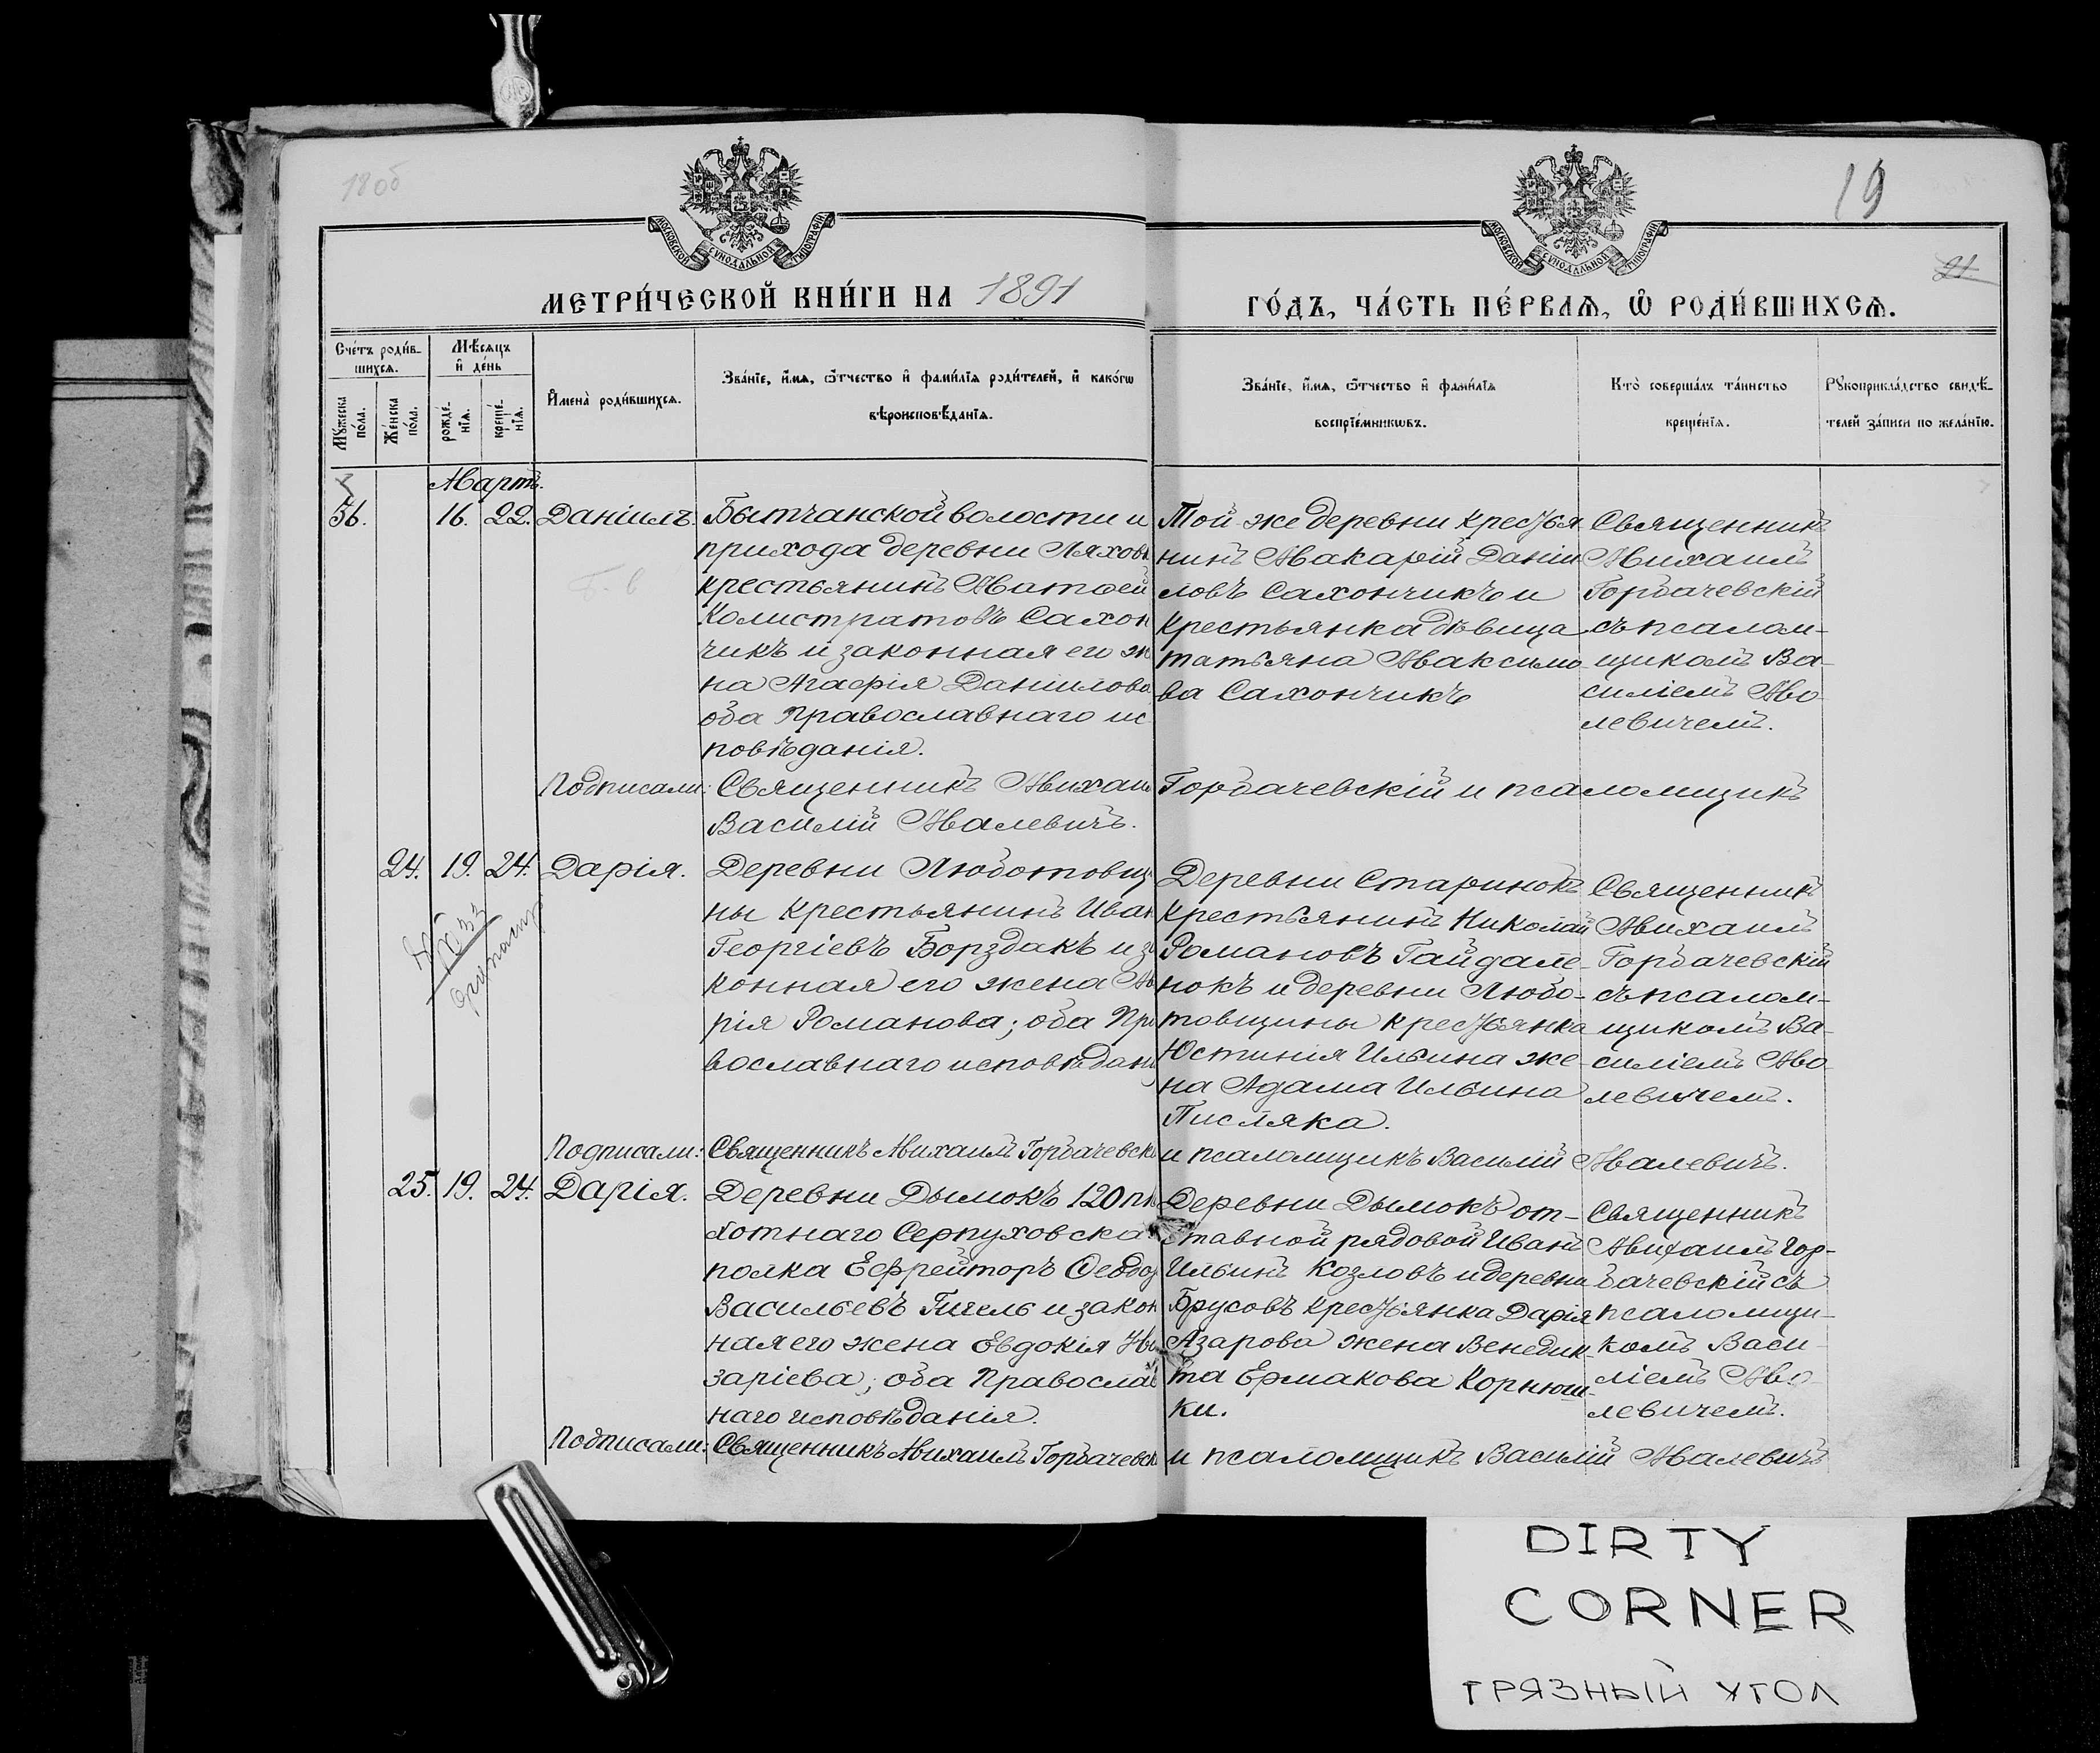 18об
19
21
МОСКОВСКОЙ СѴНОДАЛЬНОЙ ТИПОГРАФІИ
МОСКОВСКОЙ СѴНОДАЛЬНОЙ ТИПОГРАФІИ
МЕТРИ́ЧЕСКОЙ КНИ́ГИ НА 1891
ГО́ДЪ, ЧА́СТЬ ПЕ́РВАѦ, Ѽ РОДИ́ВШИХСѦ.
Сче́тъ роди́в-
шихсѧ.
Мꙋ́жеска
по́ла.
Же́нска
по́ла.
Мѣ́сѧцъ
и҆ де́нь
рожде́-
нїѧ.
креще́-
нїѧ.
И҆мена̀ роди́вшихсѧ.
Зва́нїе, и҆́мѧ, ѻ҆́тчество и҆ фами́лїѧ роди́телей, и҆ како́гѡ
вѣроисповѣ́данїѧ.
Зва́нїе, и҆́мѧ, ѻ҆́тчество и҆ фами́лїѧ
воспрїе́мникѡвъ.
Кто̀ соверша́лъ та́инство
креще́нїѧ.
Рꙋкоприкла́дство свидѣ́-
телей за́писи по жела́нїю.
Мартъ.
56. 16. 22. Даніилъ.
Бытчанской волости и
прихода деревни Ляхов
крестьянинъ Матѳей
Колистратовъ Сахон
чикъ и законная его же
на Агафія Даніилова
оба Православнаго ис
повѣданія.
Той-же деревни кресть́я
нинъ Макарій Даніи
ловъ Сахончикъ и
крестьянка дѣвица
татьяна Максимо
ва Сахончикъ
Священникъ
Михаилъ
Горбачевскій
съ псалом-
щикомъ Ва-
силіемъ Мо
левичемъ.
Подписали: Священникъ Михаи Горбачевскій и псаломщикъ
Василій Малевичъ.
24. 19. 24. Дарія.
Деревни Люботовщ
ны крестьянинъ Иван
Георгіевъ Борздакъ и за
конная его жена Ма
рія Романова; оба Пра
вославнаго исповѣдані
Деревни Старинокъ
крестьянинъ Николай
Романовъ Гайдале-
нокъ и деревни Любо-
товщины крестьянка
Юстинія Ильина же-
на Адама Ильина
Писляка.
Священникъ
Михаилъ
Горбачевскій
съ псалом-
щикомъ Ва-
силіемъ Мо
левичемъ.
Подписали: Священникъ Михаилъ Горбачевскі и псаломщикъ Василій Малевичъ.
25. 19. 24. Дарія.
Деревни Дымокъ 120 пѣ
хотнаго Серпуховска
полка Ефрейторъ Ѳеодо
Васильевъ Гигель и закон
ная его жена Евдокія На
заріева; оба Православ
наго исповѣданія.
Деревни Дымокъ от-
ставной рядовой Иванъ
Ильинъ Козловъ и деревни
Брусовъ крестьянка Дарія
Азарова жена Венедик-
та Ермакова Корнюш-
ки.
Священникъ
Михаилъ Гор-
бачевскій съ
псаломщи-
комъ Васи-
ліемъ Мо-
левичемъ.
Подписали: Священникъ Михаилъ Горбачевск и псаломщикъ Василій Малевичъ
DIRTY
CORNER
ГРЯЗНЫЙ УГОЛ